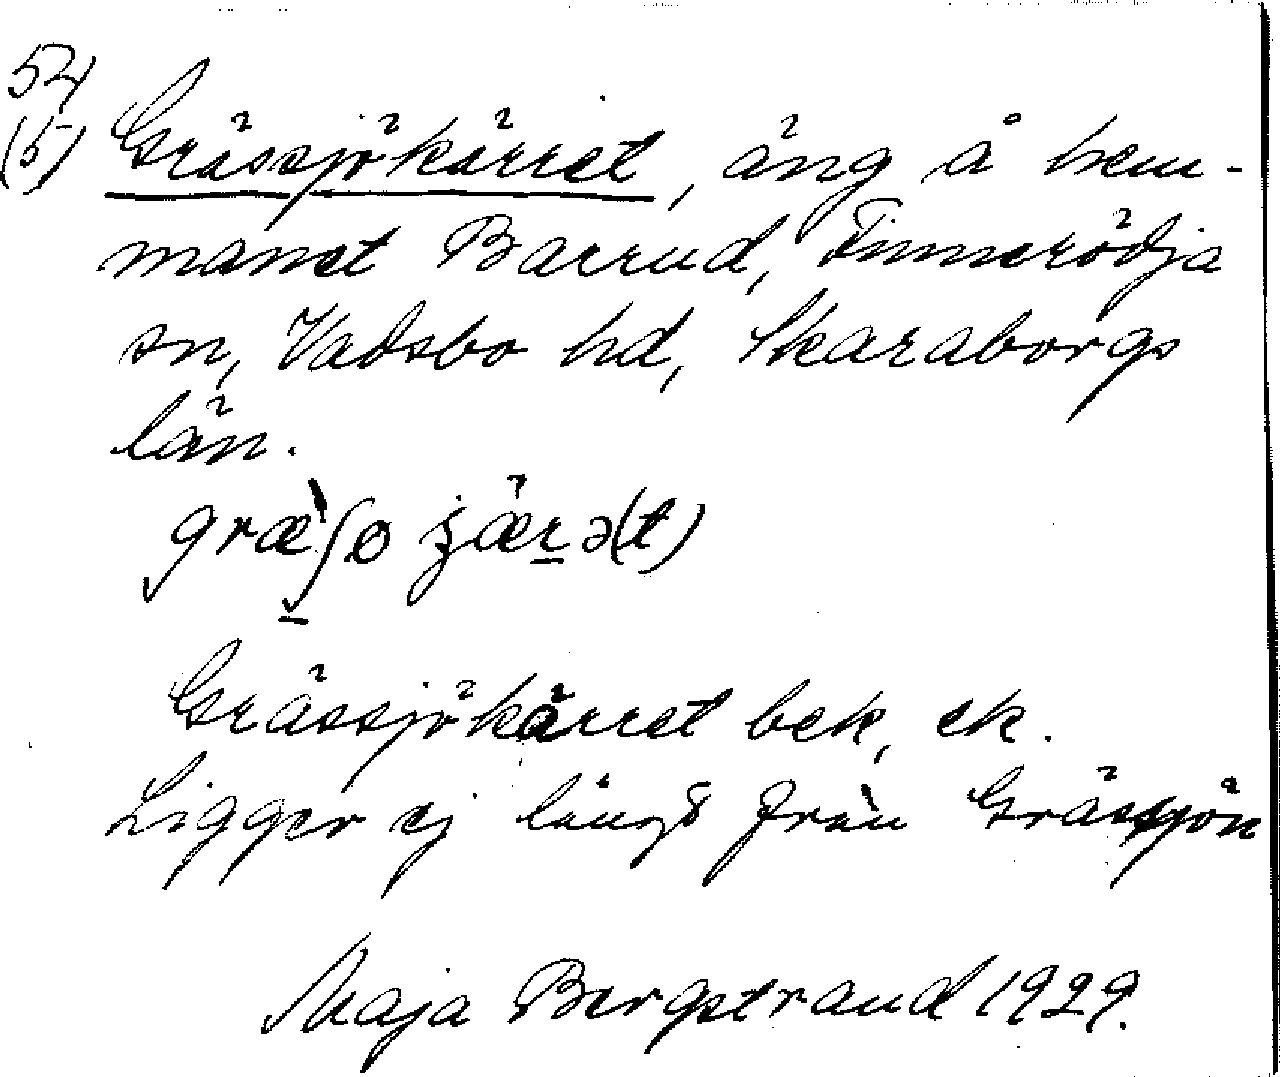 54)
(5) Grässjökärret, äng å hem-
manet Barrud, Finnerödja
sn, Vadsbo hd, Skaraborgs
län.
græ̀ʃɵ ʒæ̀rə(t)
Grässjökärret bek, ek.
Ligger ej långt från Grässjön
Maja Bergstrand 1929.